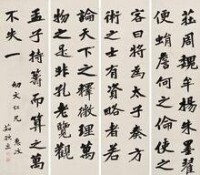 莊周魏牟楊朱墨翟
便蜎詹何之倫使之
客曰將為太子奏方
術之士有資略者若
論天下之釋微理萬
物之是非孔老覽觀
孟子持籌而算之萬
不失一